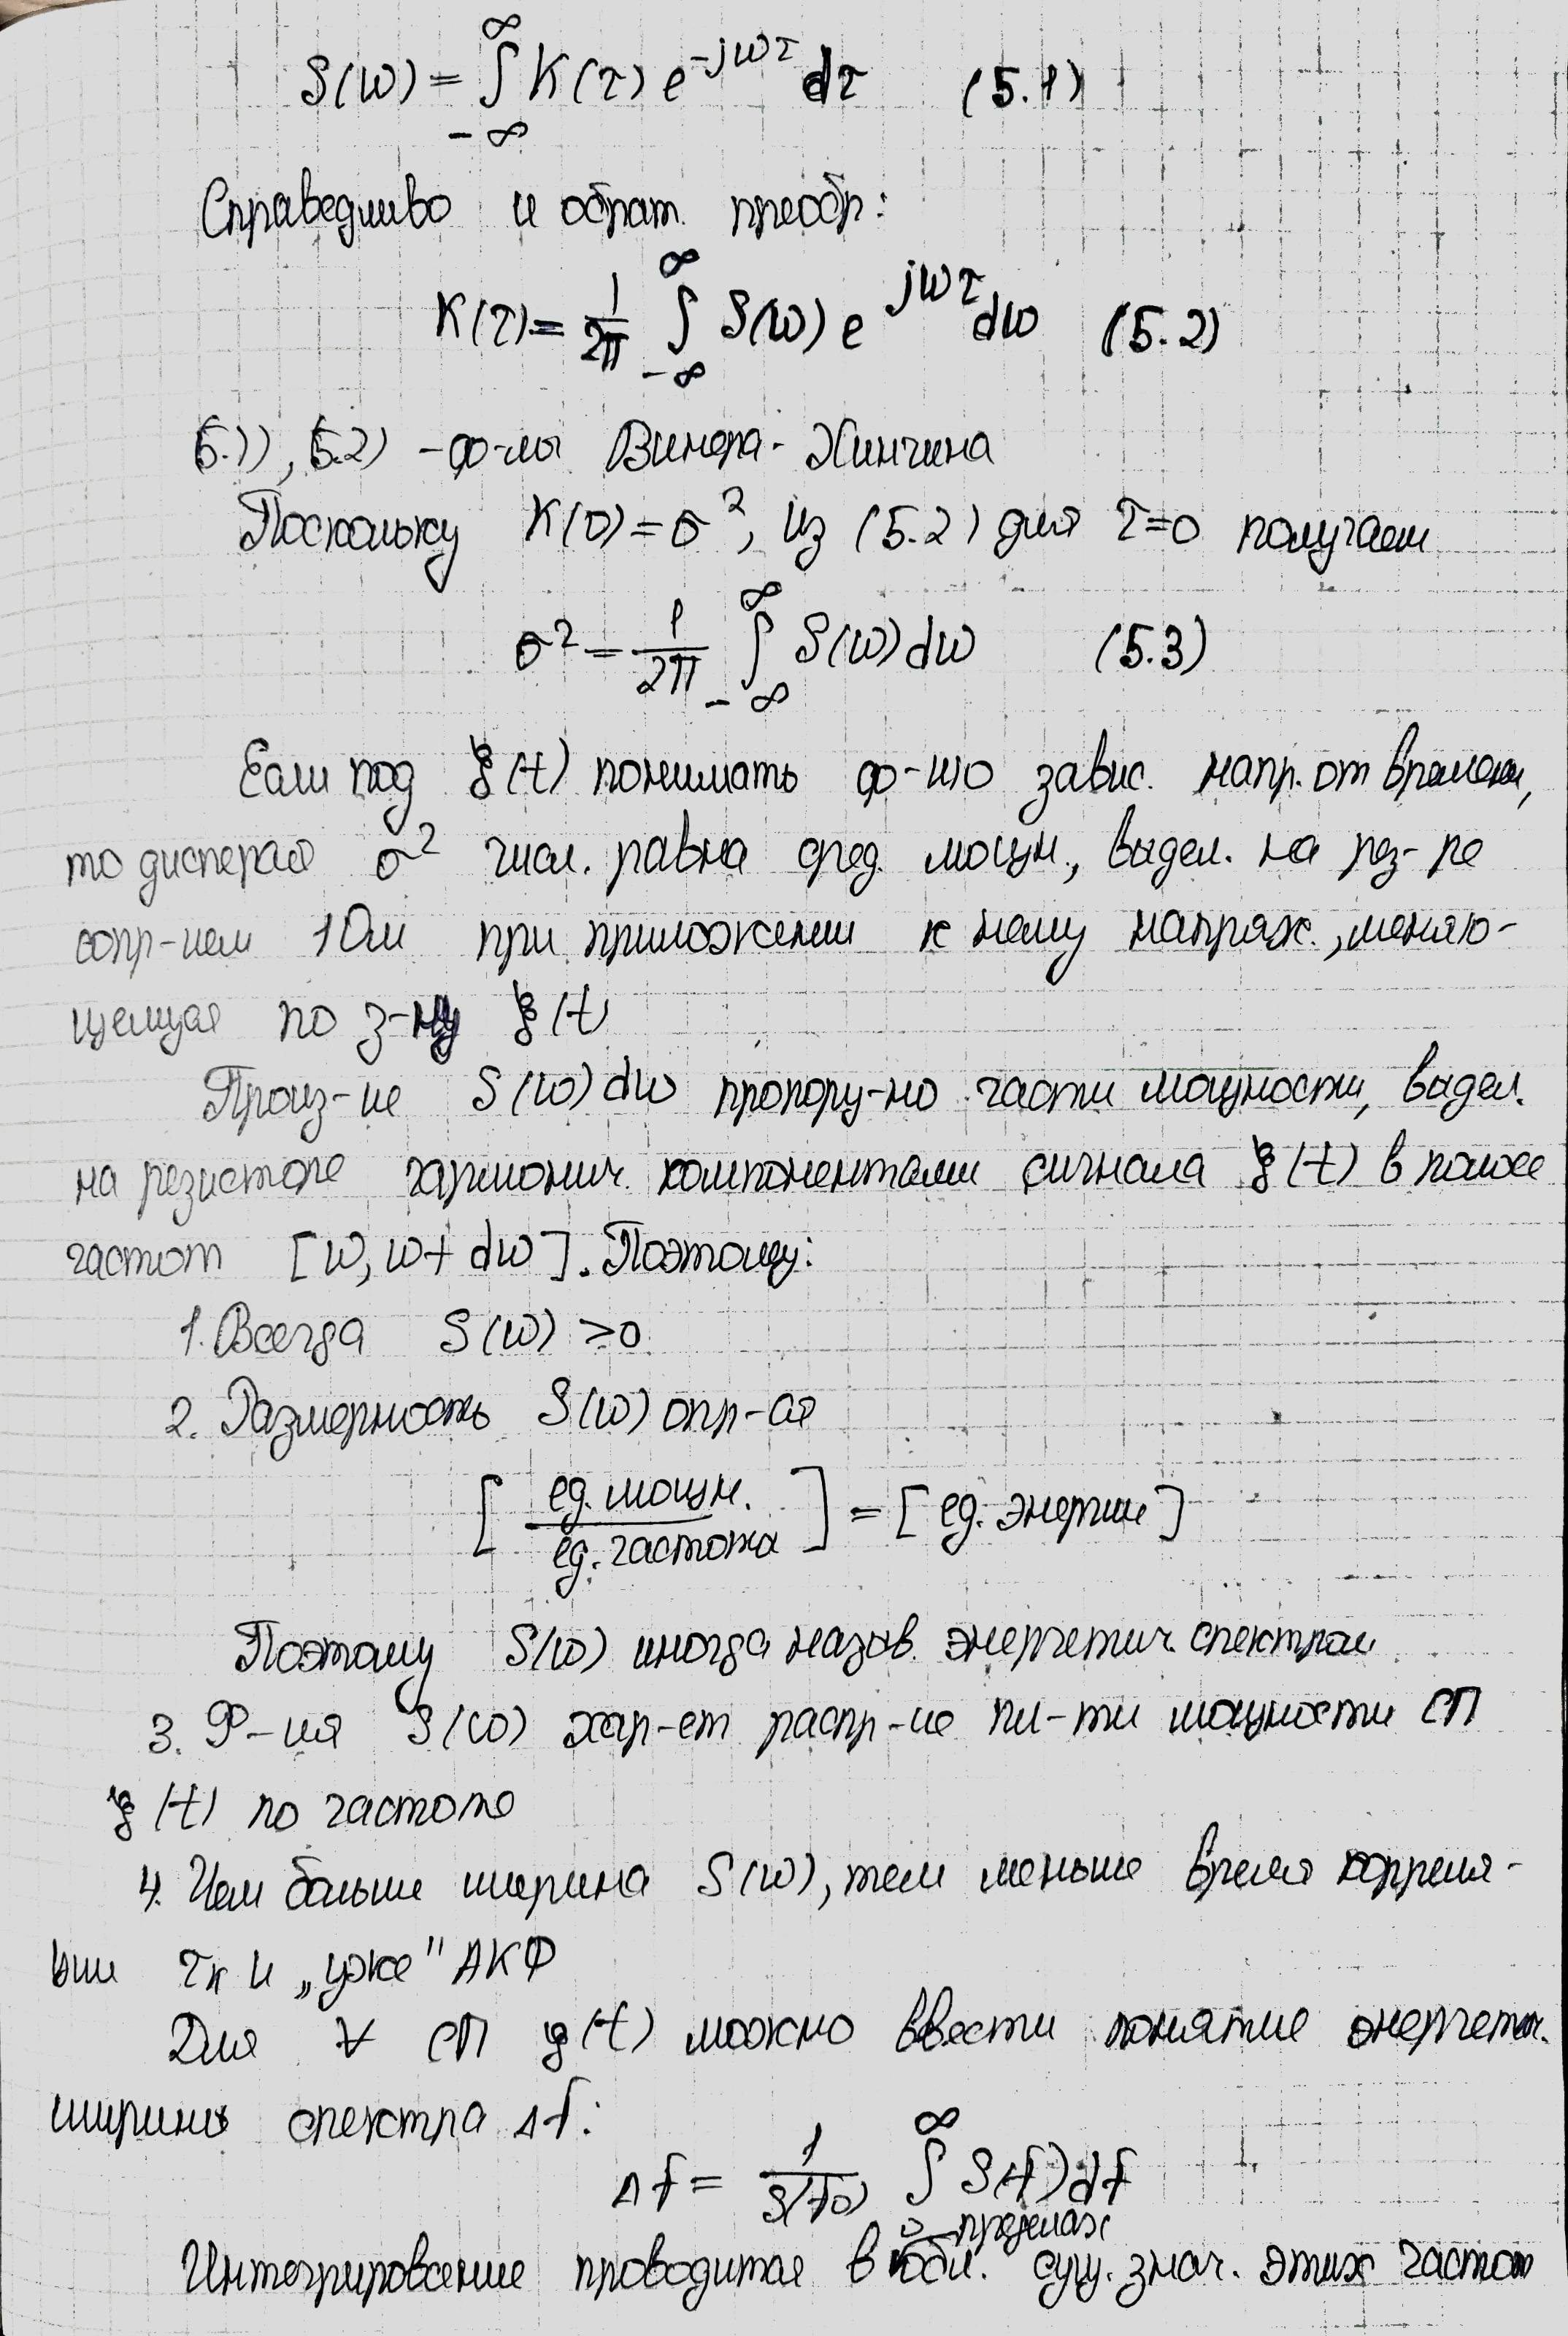 S(ω) = ∫_{-∞}^{∞} K(τ) e^{-jωτ} dτ (5.1)
Справедливо и обрат. преобр:
K(τ) = 1/2π ∫_{-∞}^{∞} S(ω) e^{jωτ} dω (5.2)
(5.1), (5.2) - ф-лы Винера-Хинчина
Поскольку K(0) = σ², из (5.2) для τ=0 получаем
σ² = 1/2π ∫_{-∞}^{∞} S(ω) dω (5.3)
Если под ξ(t) понимать ф-цию завис. напр. от времени,
то дисперсия σ² числ. равна сред. мощн., выдел. на рез-ре
сопр-ием 1 Ом при приложении к нему напряж., меняю-
щемуся по з-ну ξ(t)
Произ-ие S(ω) dω пропорц-но части мощности, выдел.
на резисторе гармонич. компонентами сигнала ξ(t) в полосе
частот [ω, ω + dω]. Поэтому:
1. Всегда S(ω) ≥ 0
2. Размерность S(ω) опр-ся
[ ед. мощн. / ед. частоты ] = [ ед. энергии ]
Поэтому S(ω) иногда назыв. энергетич. спектром
3. Ф-ия S(ω) хар-ет распр-ие пл-ти мощности СП
ξ(t) по частоте
4. Чем больше ширина S(ω), тем меньше время корреля-
ции τк и „уже" АКФ
Для ∀ СП ξ(t) можно ввести понятие энергетич.
ширины спектра Δf:
Δf = 1/S(f0) ∫_{0}^{∞} S(f) df
пределах
Интегрирование проводится в обл. сущ. знач. этих частот